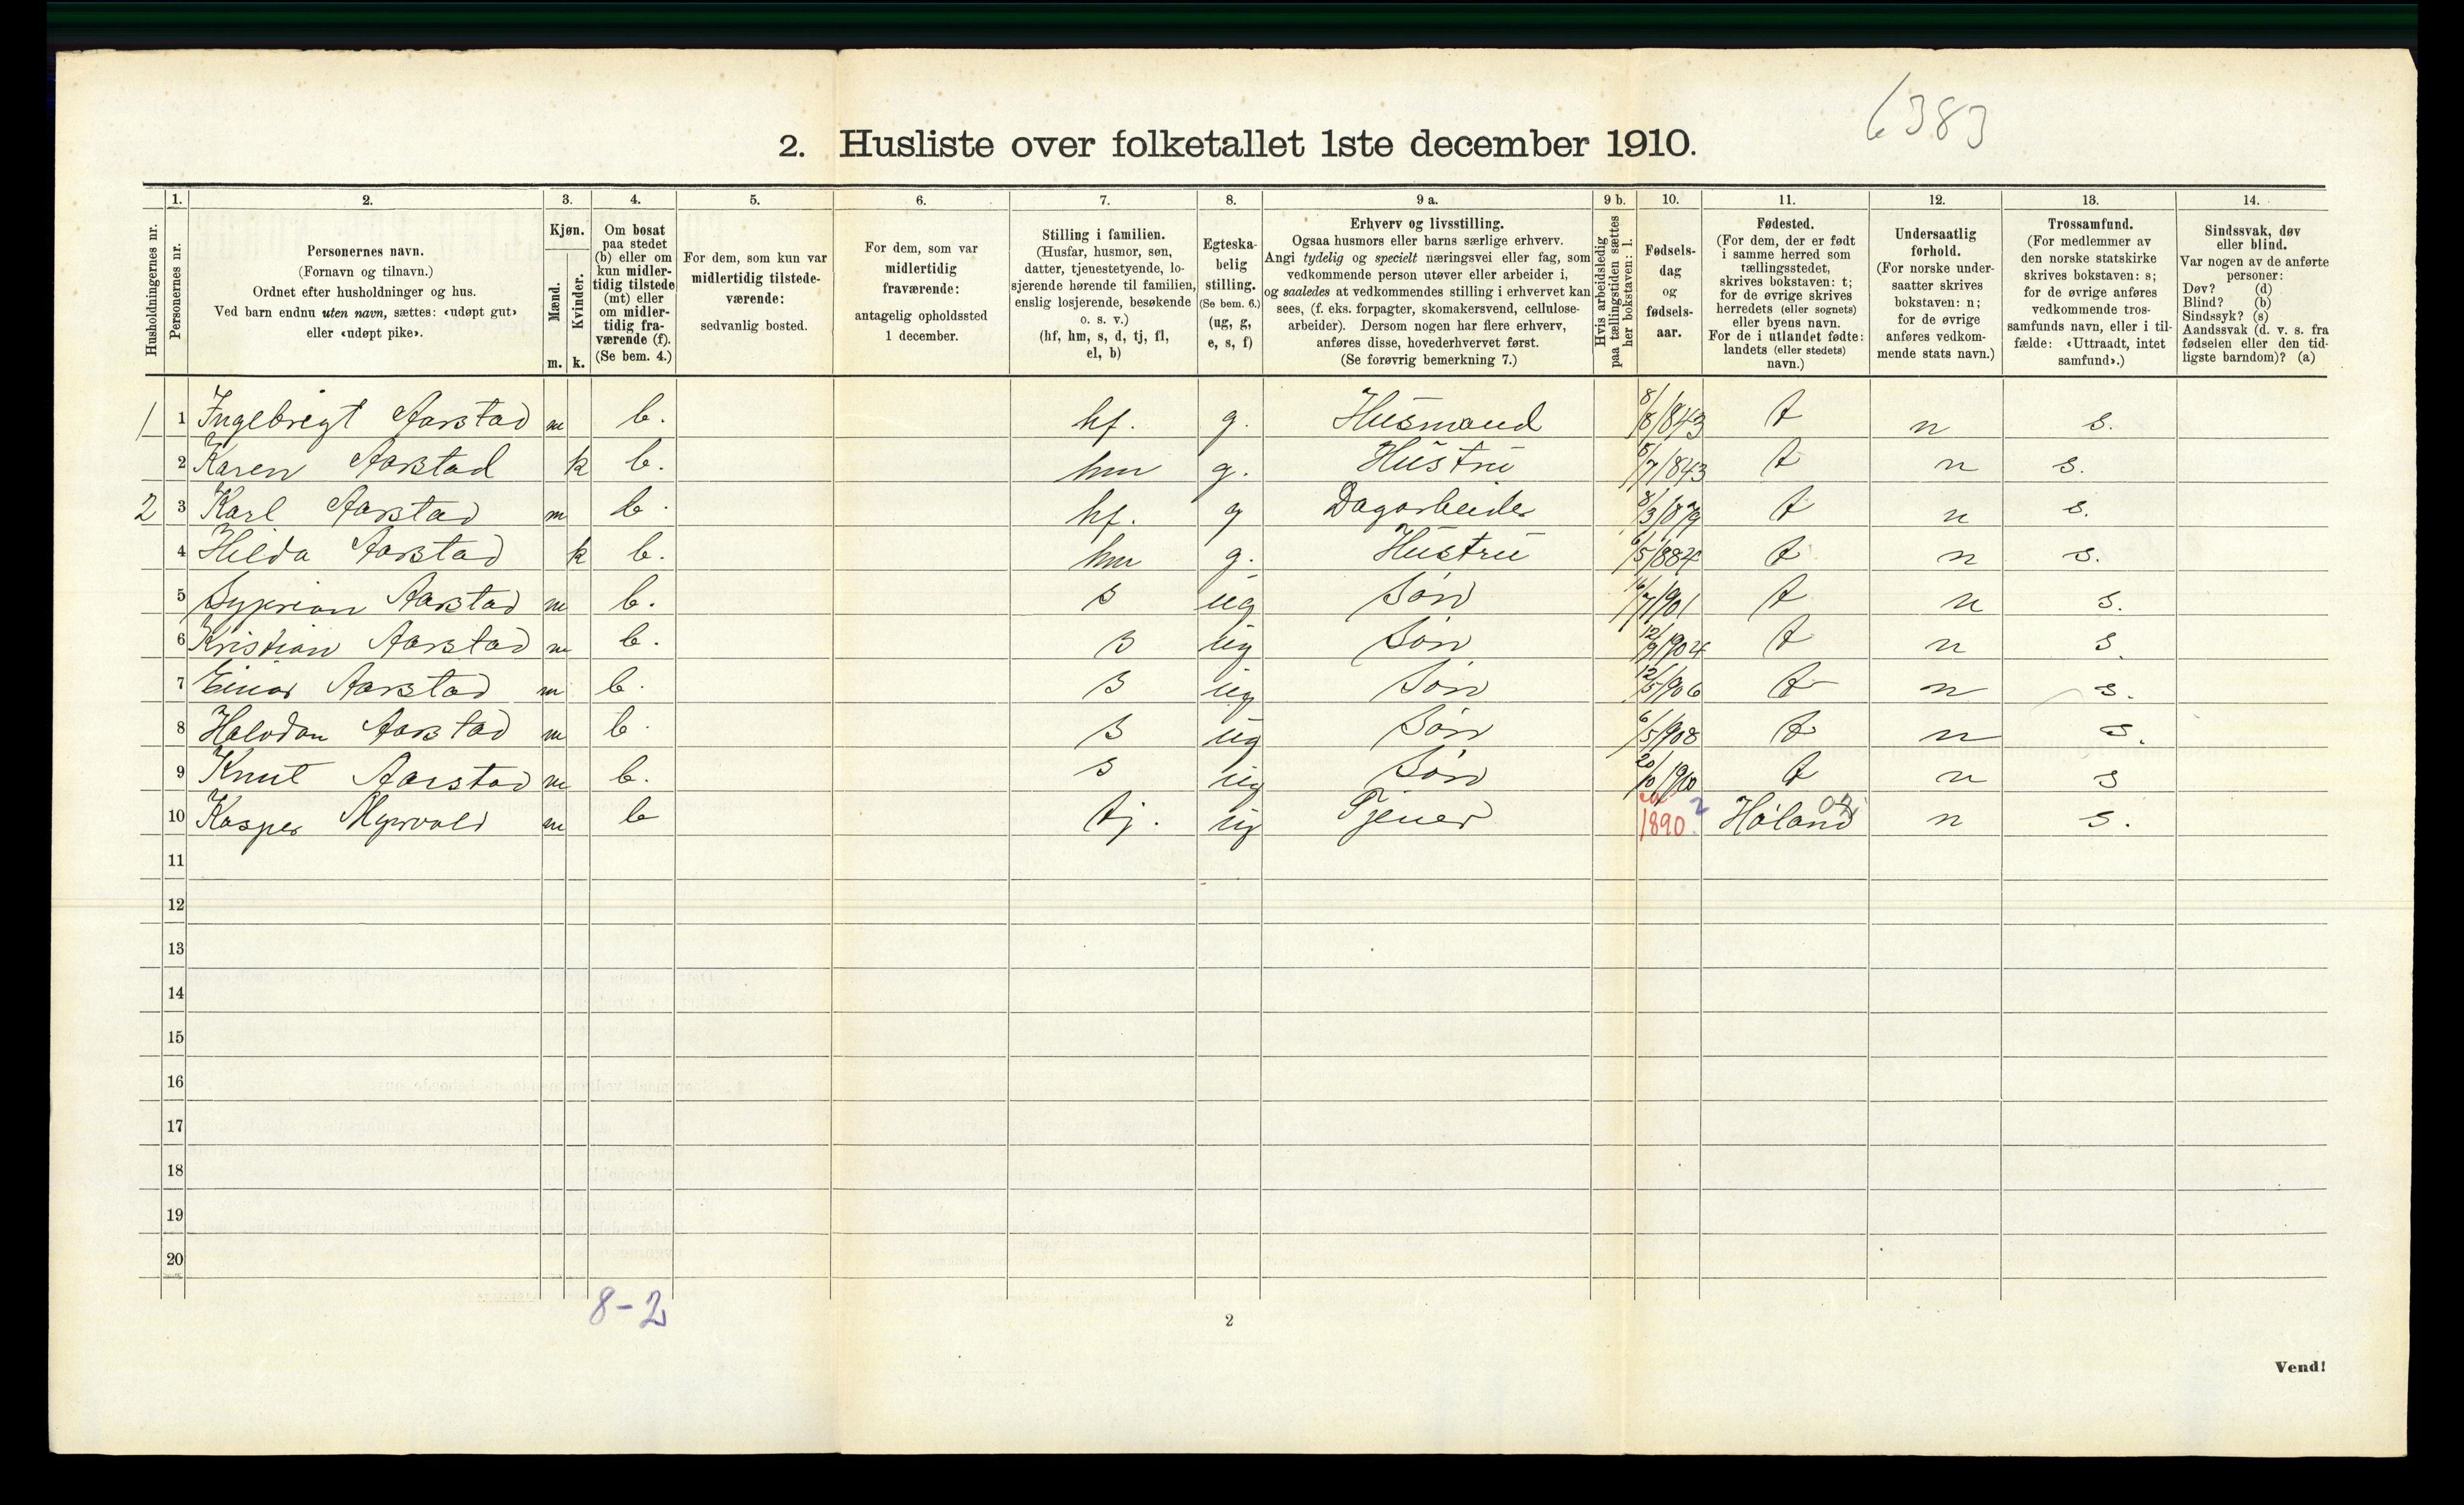 6383
2. Husliste over folketallet 1ste december 1910.
Husholdningernes nr.
1.
Personernes nr.
2.
Personernes navn.
(Fornavn og tilnavn.)
Ordnet efter husholdninger og hus.
Ved barn endnu uten navn, sættes: «udøpt gut»
eller «udøpt pike».
3.
Kjøn.
Mænd.
Kvinder.
m. k.
4.
Om bosat
paa stedet
(b) eller om
kun midler-
tidig tilstede
(mt) eller
om midler-
tidig fra-
værende (f).
(Se bem. 4.)
5.
For dem, som kun var
midlertidig tilstede-
værende:
sedvanlig bosted.
6.
For dem, som var
midlertidig
fraværende:
antagelig opholdssted
1 december.
7.
Stilling i familien.
(Husfar, husmor, søn,
datter, tjenestetyende, lo-
sjerende hørende til familien,
enslig losjerende, besøkende
o. s. v.)
(hf, hm, s, d, tj, fl,
el, b)
8.
Egteska-
belig
stilling.
(Se bem. 6.)
(ug, g,
e, s, f)
9 a.
Erhverv og livsstilling.
Ogsaa husmors eller barns særlige erhverv.
Angi tydelig og specielt næringsvei eller fag, som
vedkommende person utøver eller arbeider i,
og saaledes at vedkommendes stilling i erhvervet kan
sees, (f. eks. forpagter, skomakersvend, cellulose-
arbeider). Dersom nogen har flere erhverv,
anføres disse, hovederhvervet først.
(Se forøvrig bemerkning 7.)
9 b.
Hvis arbeidsledig
paa tællingstiden sættes
her bokstaven: l.
10.
Fødsels-
dag
og
fødsels-
aar.
11.
Fødested.
(For dem, der er født
i samme herred som
tællingsstedet,
skrives bokstaven: t;
for de øvrige skrives
herredets (eller sognets)
eller byens navn.
For de i utlandet fødte:
landets (eller stedets)
navn.)
12.
Undersaatlig
forhold.
(For norske under-
saatter skrives
bokstaven: n;
for de øvrige
anføres vedkom-
mende stats navn.)
13.
Trossamfund.
(For medlemmer av
den norske statskirke
skrives bokstaven: s;
for de øvrige anføres
vedkommende tros-
samfunds navn, eller i til-
fælde: «Uttraadt, intet
samfund».)
14.
Sindssvak, døv
eller blind.
Var nogen av de anførte
personer:
Døv? (d)
Blind? (b)
Sindssyk? (s)
Aandssvak (d. v. s. fra
fødselen eller den tid-
ligste barndom)? (a)
1 1 Ingebrigt Aarstad m b. hf. g. Husmand 8/8/843 t n s.
2 Karen Aarstad k b. hm g. Hustru 8/7/843 t n s.
2 3 Karl Aarstad m b. hf. g Dagarbeider 8/3/879 t n s.
4 Hilda Aarstad k b. hm g. Hustru 6/5/884 t n s.
5 Syprian Aarstad m b. s ug Søn 16/7/901 t n s.
6 Kristian Aarstad m b. s ug Søn 12/9/904 t n s.
7 Einar Aarstad m b. s ug Søn 12/5/906 t n s.
8 Halvdan Aarstad m b. s ug Søn 6/5/908 t n s.
9 Knut Aarstad m b. s ug Søn 20/10/910 t n s
10 Kasper Myrvold m b tj. ug Tjener 1890. 2 Høland n s.
11
12
13
14
15
16
17
18
19
20
8-2
2
Vend!